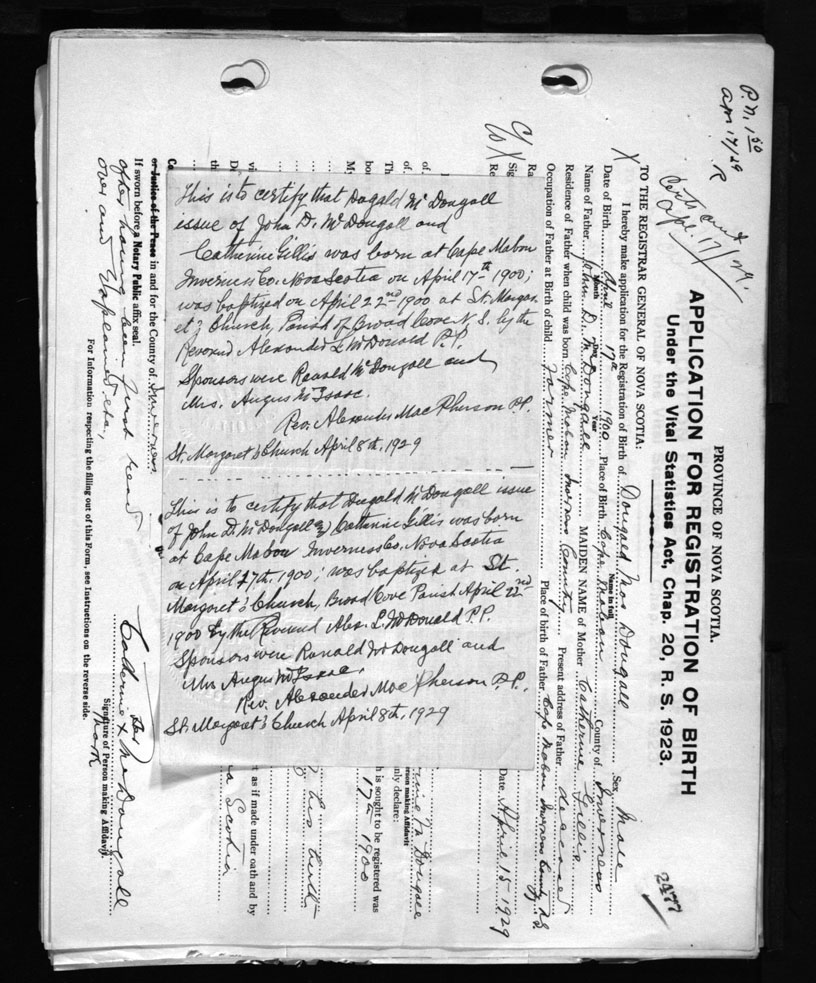 P.N. 1 50
Apr 17/29
R
Cert. and
Apr. 17/29.
PROVINCE OF NOVA SCOTIA.
APPLICATION FOR REGISTRATION OF BIRTH
Under the Vital Statistics Act, Chap. 20, R. S. 1923.
2477
TO THE REGISTRAR GENERAL OF NOVA SCOTIA:
X I hereby make application for the Registration of Birth of Dougald Mac Dougall Sex Male
Name in full
Date of Birth April 17th 1900 Place of Birth Cape Mabou County of Inverness
Month Day Year
Name of Father John D. McDougall MAIDEN NAME of Mother Catherine Gillis
Residence of Father when child was born Cape Mabou Inverness County Present address of Father deceased
Occupation of Father at Birth of child Farmer Place of birth of Father Cape Mabou Inverness County N.S.
Ra
Sig
Re Date April 15 1929
This is to certify that Dugald McDougall
issue of John D. McDougall and
Catherine Gillis was born at Cape Mabou
Inverness Co. Nova Scotia on April 17th, 1900;
was baptized on April 22nd 1900 at St. Margar-
et's Church, Parish of Broad Cove N.S. by the
Reverend Alexander L. McDonald P.P.
Sponsors were Ranald McDougall and
Mrs. Angus McIsaac.
Rev. Alexander MacPherson P.P.
St. Margaret's Church April 8th, 1929
This is to certify that Dugald McDougall issue
of John D. McDougall & Catherine Gillis was born
at Cape Mabou Inverness Co. Nova Scotia
on April 17th, 1900; was baptized at St.
Margaret's Church, Broad Cove Parish April 22nd
1900 by the Reverend Alex. L. McDonald P.P.
Sponsors were Ranald McDougall and
Mrs Angus McIsaac.
Rev. Alexander MacPherson P.P.
St. Margaret's Church April 8th, 1929
of
of
rson making Affidavit
nly declare:
My
h is sought to be registered was
bo 17th 1900
th
vi t as if made under oath and by
De
th a Scotia
Co
or Justice of the Peace in and for the County of Inverness
If sworn before a Notary Public affix seal.
after having been first read
over and explained etc,
her
Catherine X McDougall
mark
Signature of Person making Affidavit.
For Information respecting the filling out of this Form, see Instructions on the reverse side.